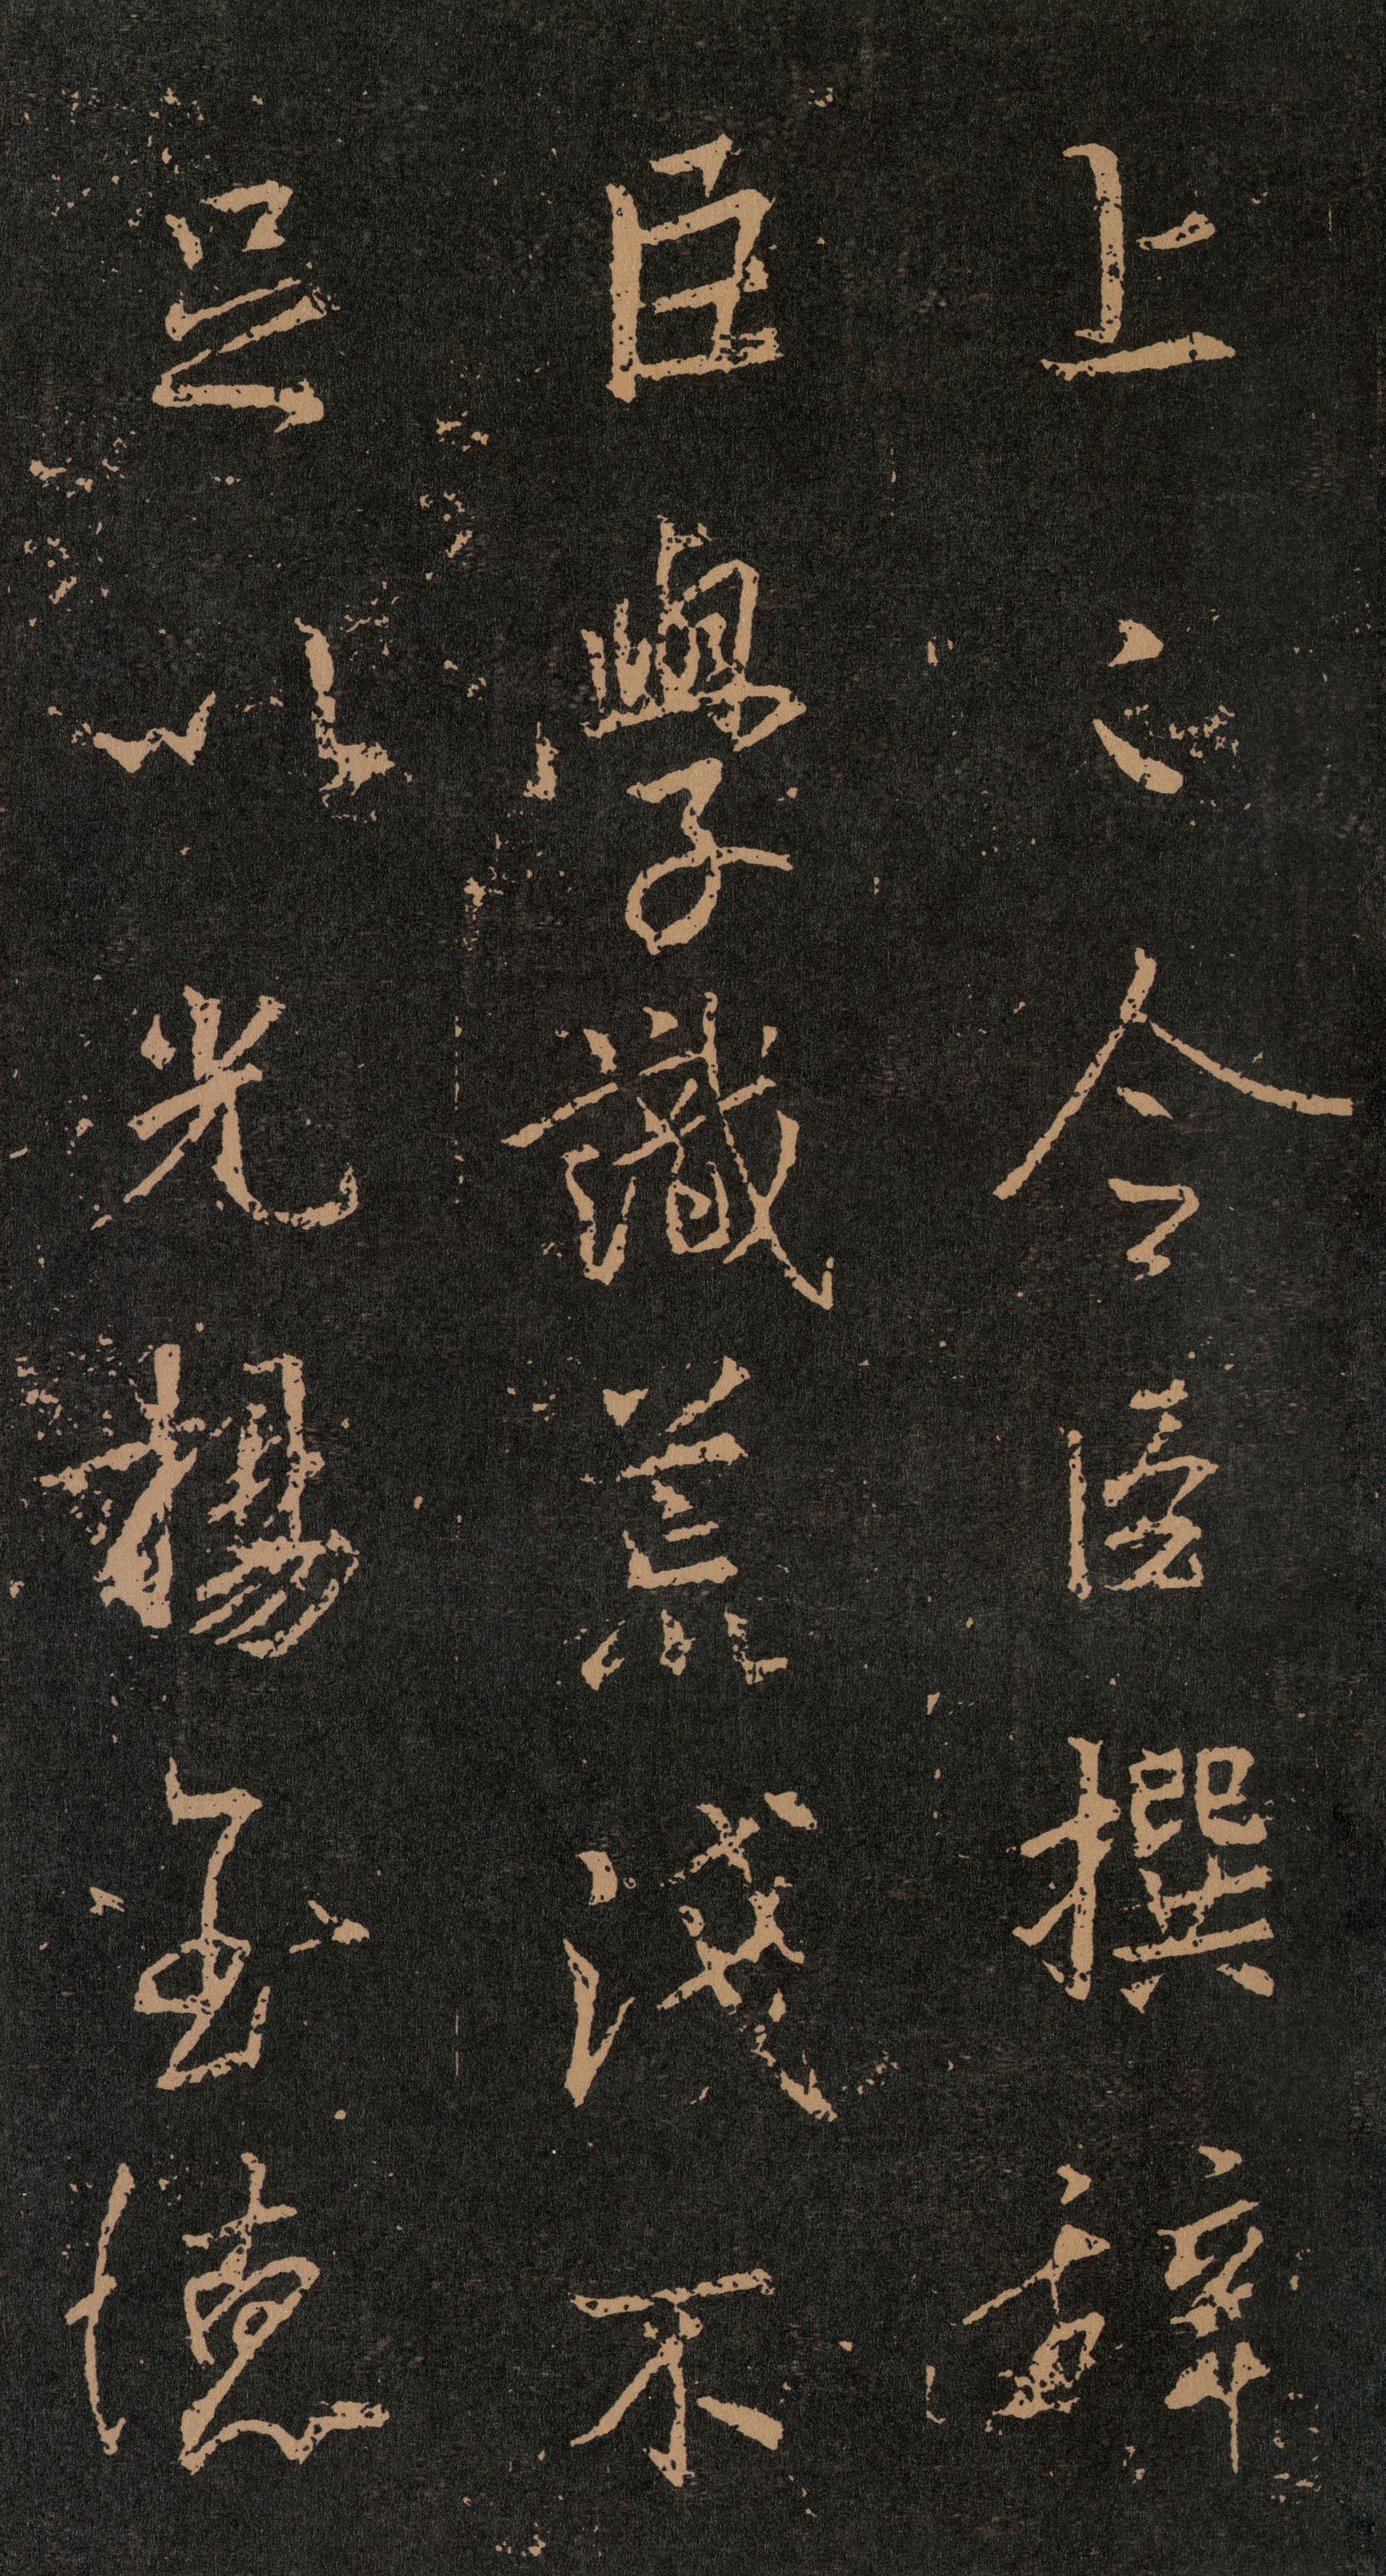 上之令臣撰辭
臣學識荒淺不
足以光揚德